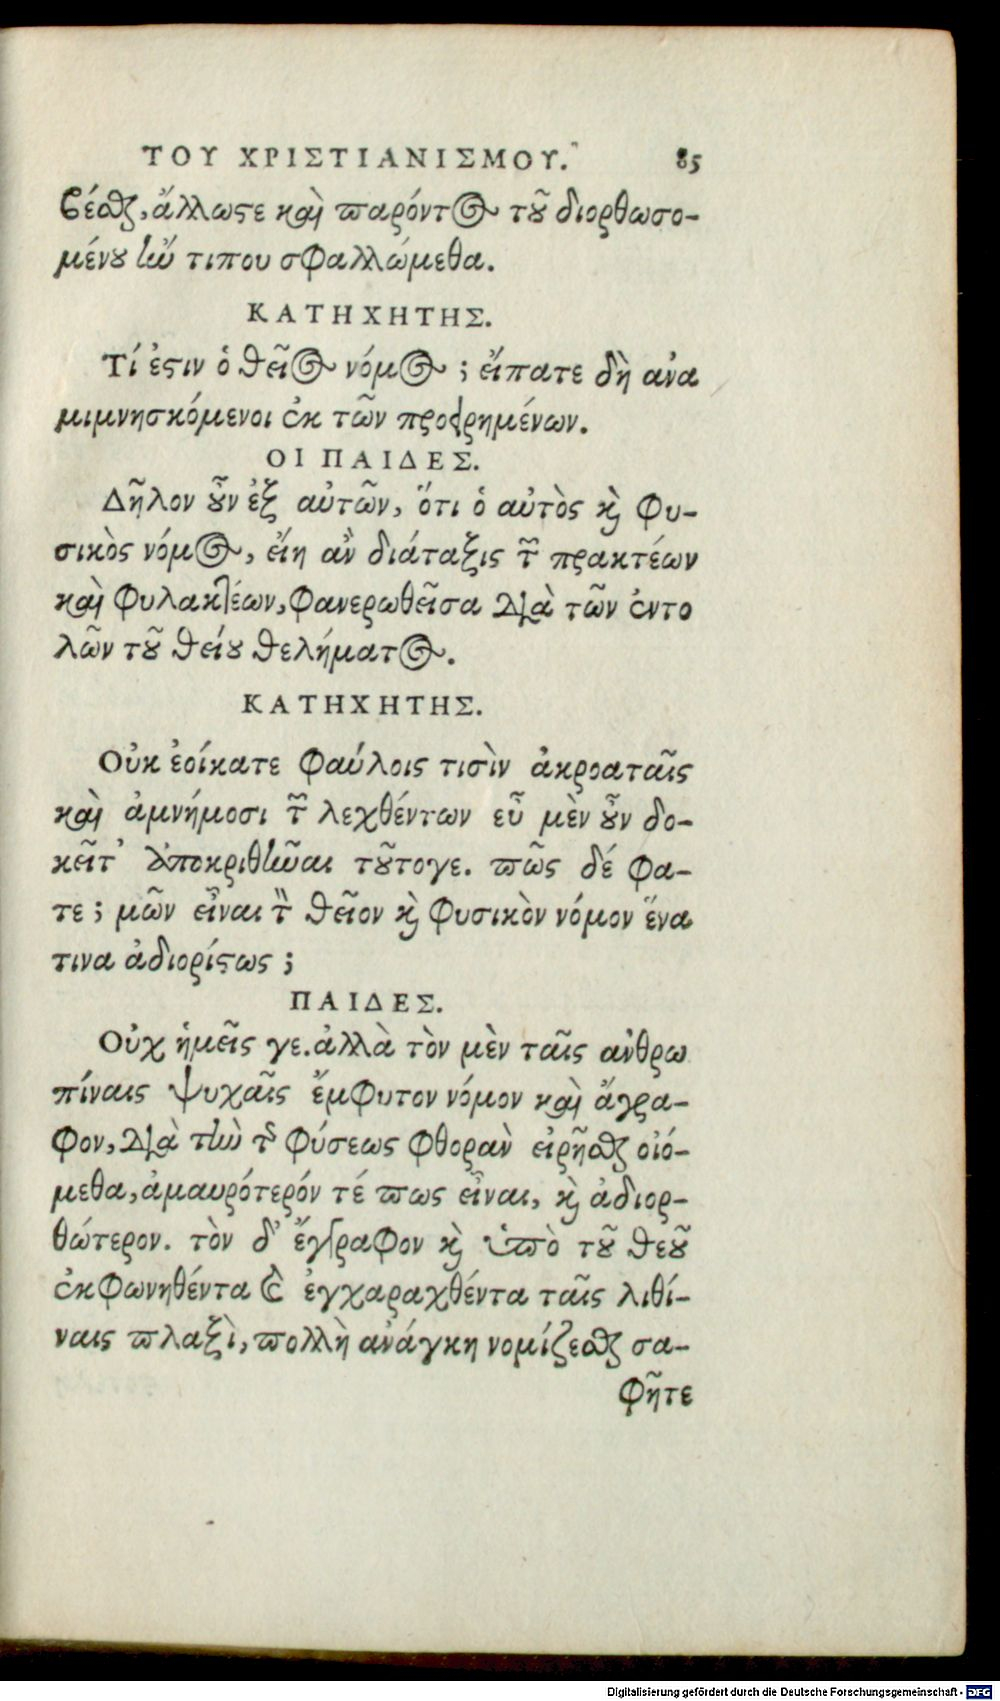 ΤΟΥ ΧΡΙΣΤΙΑΝΙΣΜΟΥ. 85
ϐέσθαι, ἄλλωςτε καὶ παρόντος τοῦ διορθωσο-
μένου ἰὼ τιπου σφαλλώμεθα.
ΚΑΤΗΧΗΤΗΣ.
Τί ἐστιν ὁ θεῖος νόμος; εἴπατε δὴ ἀνα
μιμνησκόμενοι ἐκ τῶν προειρημένων.
ΟΙ ΠΑΙΔΕΣ.
Δῆλον οὖν ἐξ αὐτῶν, ὅτι ὁ αὐτὸς καὶ φυ-
σικὸς νόμος, εἴη ἂν διάταξις τῶν πρακτέων
καὶ φυλακτέων, φανερωθεῖσα διὰ τῶν ἐντο
λῶν τοῦ θείου θελήματος.
ΚΑΤΗΧΗΤΗΣ.
Οὐκ ἐοίκατε φαύλοις τισὶν ἀκροαταῖς
καὶ ἀμνήμοσι τῶν λεχθέντων εὖ μὲν οὖν δο-
κεῖτ' ἀποκριθῆναι τοῦτογε. πῶς δέ φα-
τε; μῶν εἶναι τὸν θεῖον καὶ φυσικὸν νόμον ἕνα
τινα ἀδιορίστως;
ΠΑΙΔΕΣ.
Οὐχ ἡμεῖς γε. ἀλλὰ τὸν μὲν ταῖς ἀνθρω
πίναις ψυχαῖς ἔμφυτον νόμον καὶ ἄγρα-
φον, διὰ τὴν τῆς φύσεως φθορὰν εἰρῆσθαι οἰό-
μεθα, ἀμαυρότερόν τέ πως εἶναι, καὶ ἀδιορ-
θώτερον. τὸν δ' ἔγγραφον καὶ ὑπὸ τοῦ θεοῦ
ἐκφωνηθέντα καὶ ἐγχαραχθέντα ταῖς λιθί-
ναις πλαξὶ, πολλὴ ἀνάγκη νομίζεσθαι σα-
φῆτε
Digitalisierung gefördert durch die Deutsche Forschungsgemeinschaft - DFG